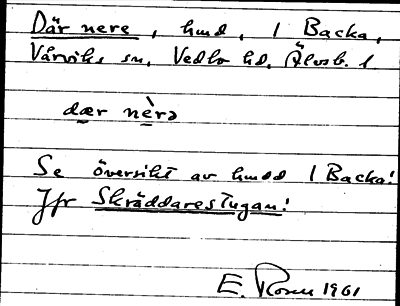 Där nere, hmd, 1 Backa,
Vårviks sn, Vedbo hd, Älvsb. l
dær nèrə
Se översikt av hmdd 1 Backa!
Jfr Skräddarestugan!
E. Rosen 1961